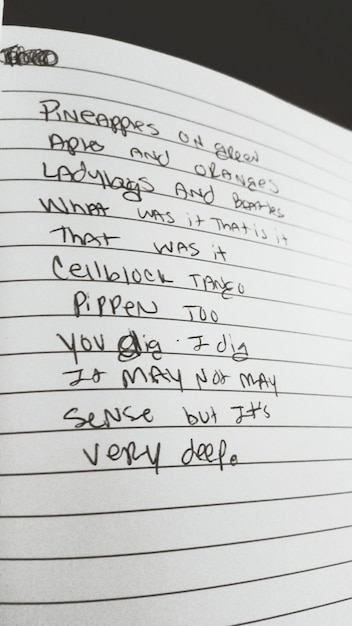 Pineapples on green
Aple and oranges
Ladybugs and Beatles
What was it that is it
that was it
Cellblock Tango
Pippen Too
you dig. I dig
It may not may
sense but It's
very deep.